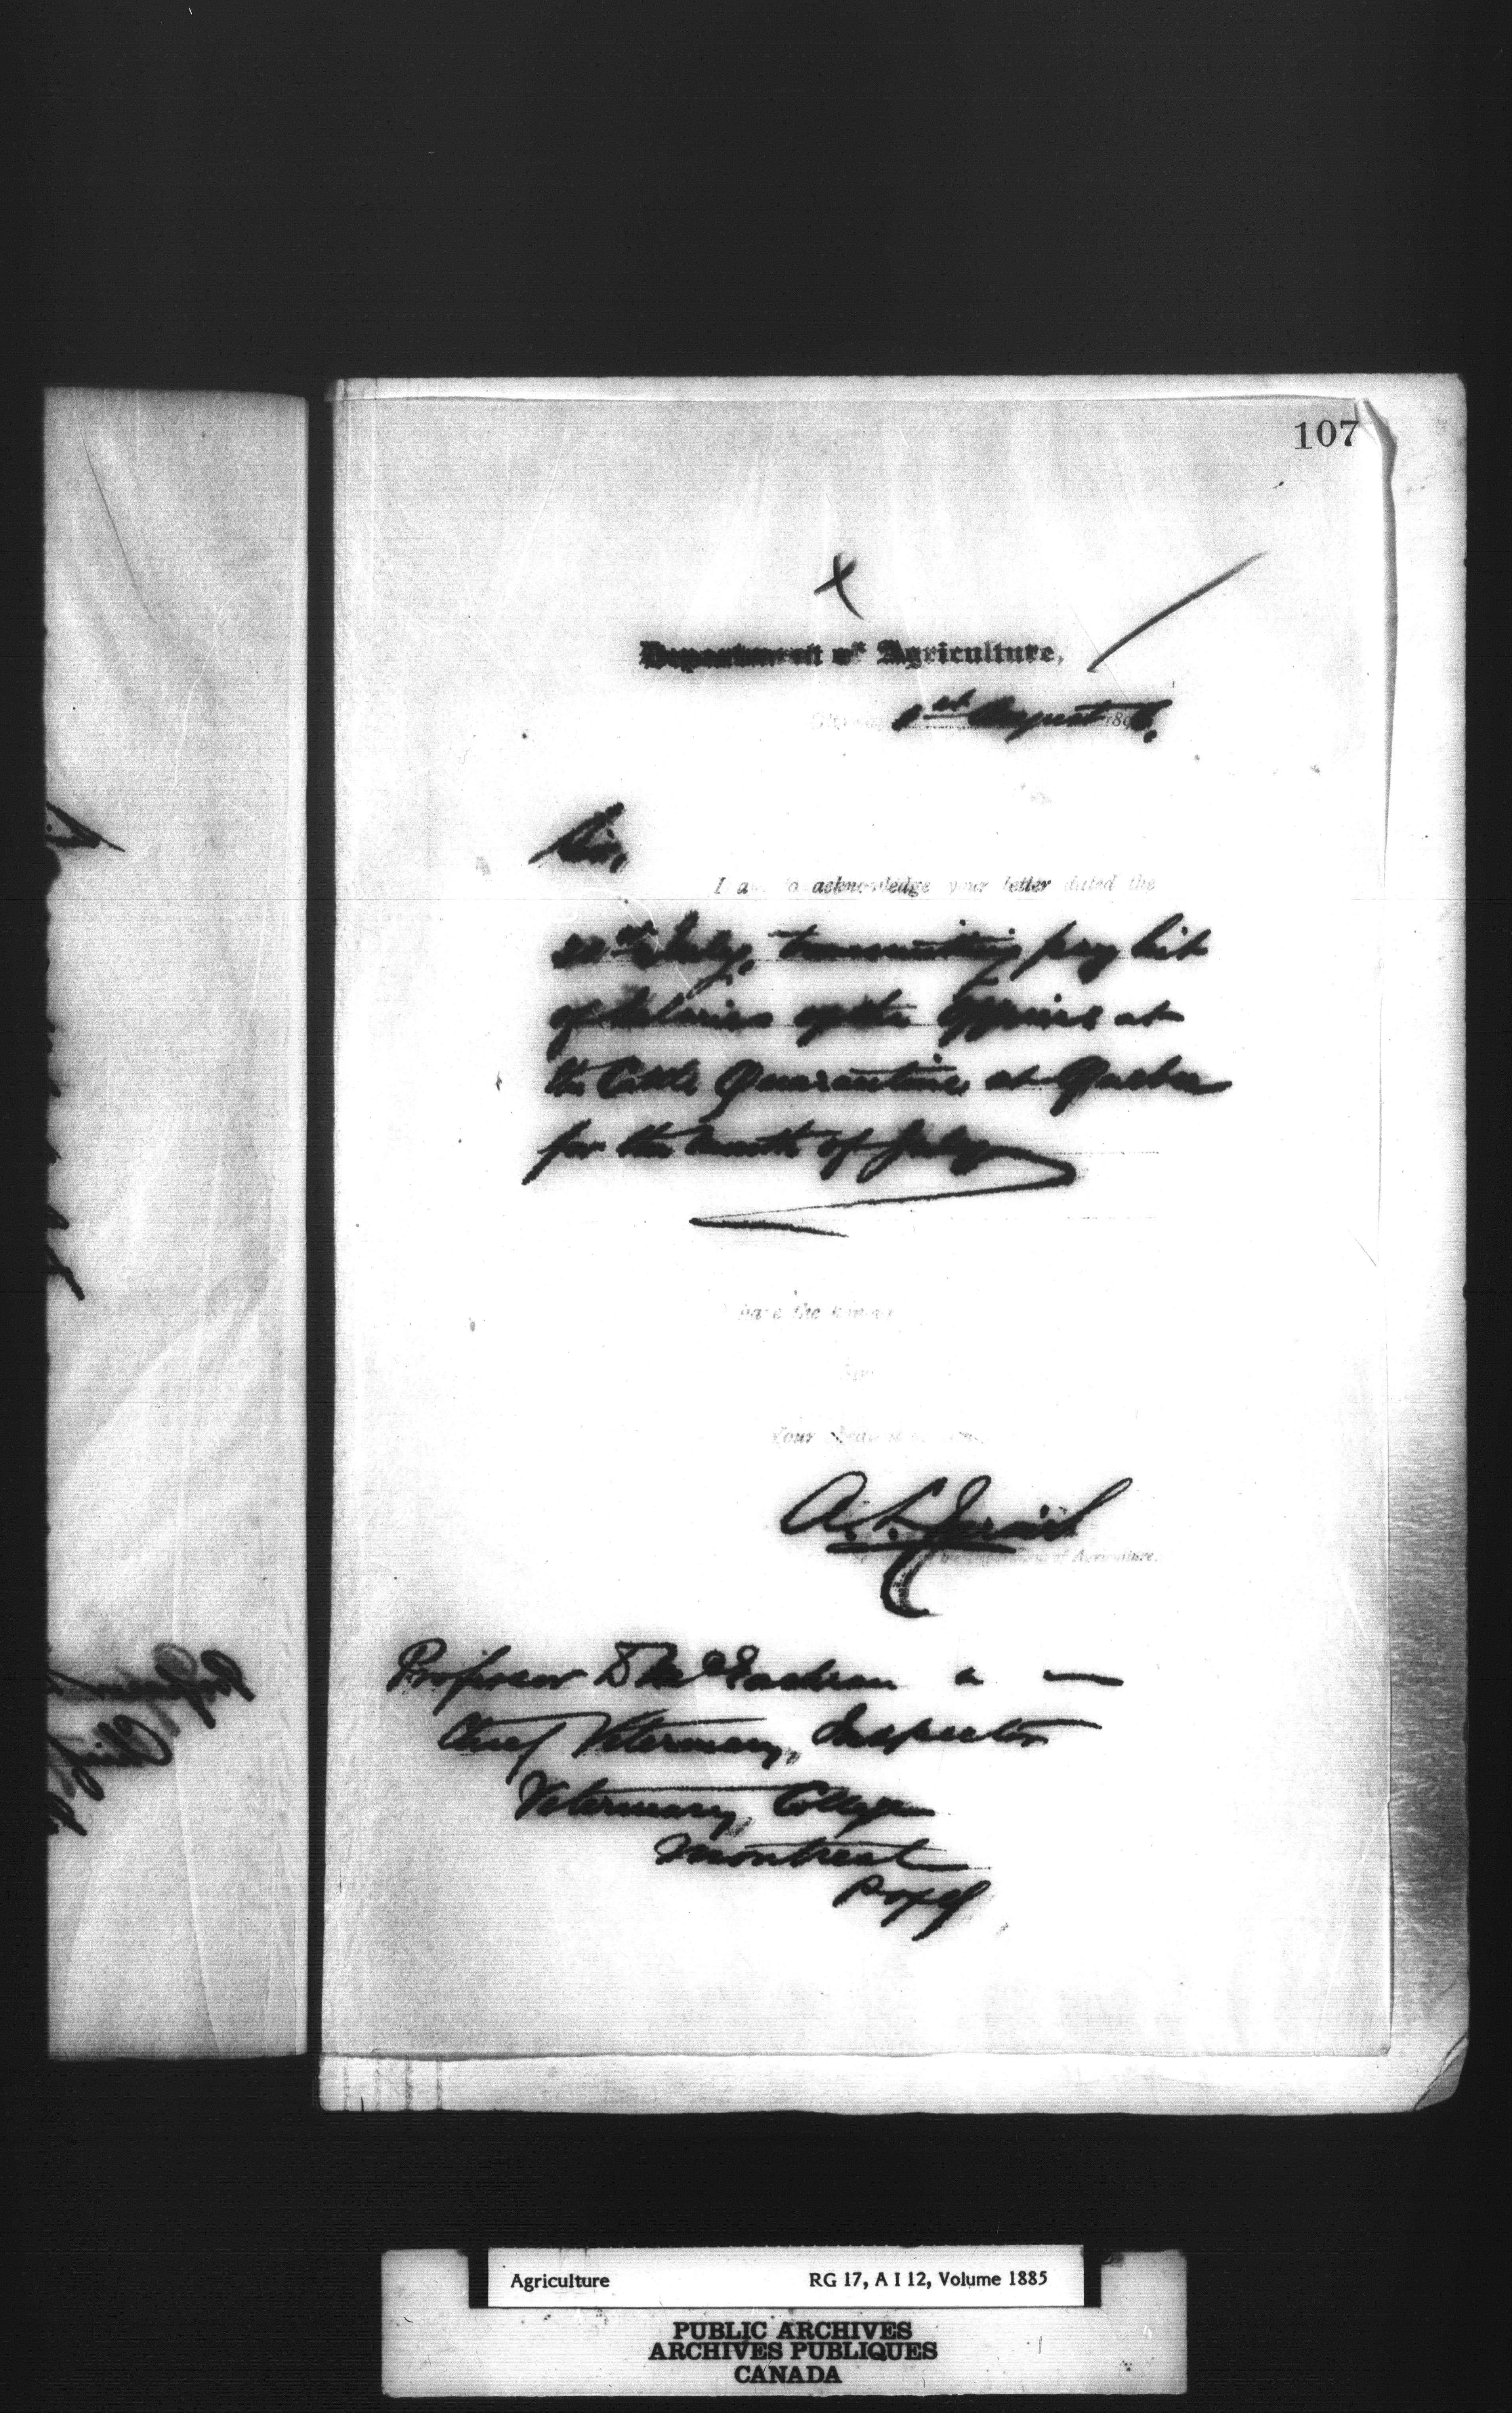 107
Department of Agriculture,
1st August 1896.
Sir,
I am to acknowledge your letter dated the
July, transmitting pay list
of Salaries of the Officers at
the Cattle Quarantine at Quebec
for the month of July
I have the honour
Sir
Your
A. L. Jarvis
Department of Agriculture.
Professor D McEachran
Chief Veterinary Inspector
Veterinary College
Montreal
P of Q
Agriculture RG 17, A I 12, Volume 1885
PUBLIC ARCHIVES
ARCHIVES PUBLIQUES
CANADA